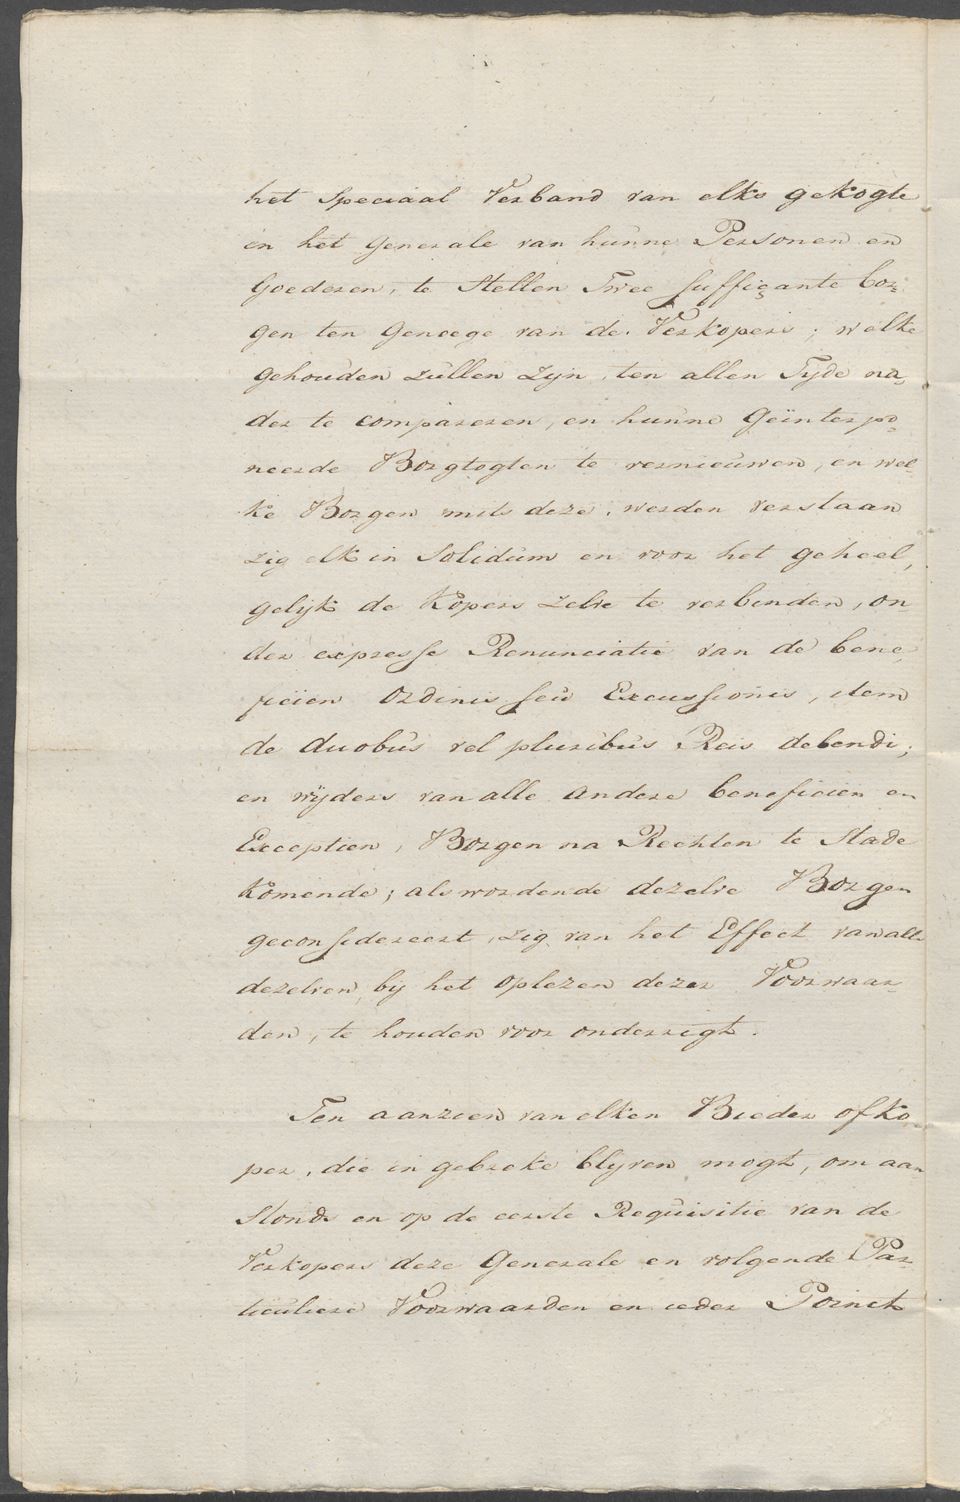 het Speciaal Verband van elks gekogte
en het Generale van hunne Personen en
Goederen, te Stellen Twee Suffiçante bor-
gen ten Genoege van de Verkopers; welke
gehouden zullen zijn, ten allen Tyde na-
der te compareren, en hunne Geïnterpo-
neerde Borgtogten te vernieuwen, en wel-
ke Borgen mits deze, werden verstaan
zig elk in Solidum en voor het geheel,
gelijk de Kopers zelve te verbinden, on-
der expresse Renunciatie van de bene-
ficien Ordinis seu Excussionis, item
de duobus vel pluribus Reis debendi;
en wijders van alle andere beneficien en
Exceptien, Borgen na Rechten te Stade
komende; als wordende dezelve Borgen
geconsidereert, zig van het Effect van alle
dezelven, bij het oplezen dezer Voorwaar-
den, te houden voor onderrigt.
Ten aanzien van elken Bieder of Ko-
per, die in gebreke blyven mogt, om aan
Stonds en op de eerste Requisitie van de
Verkopers deze Generale en volgende Par-
ticuliere Voorwaarden en ieder Poinct